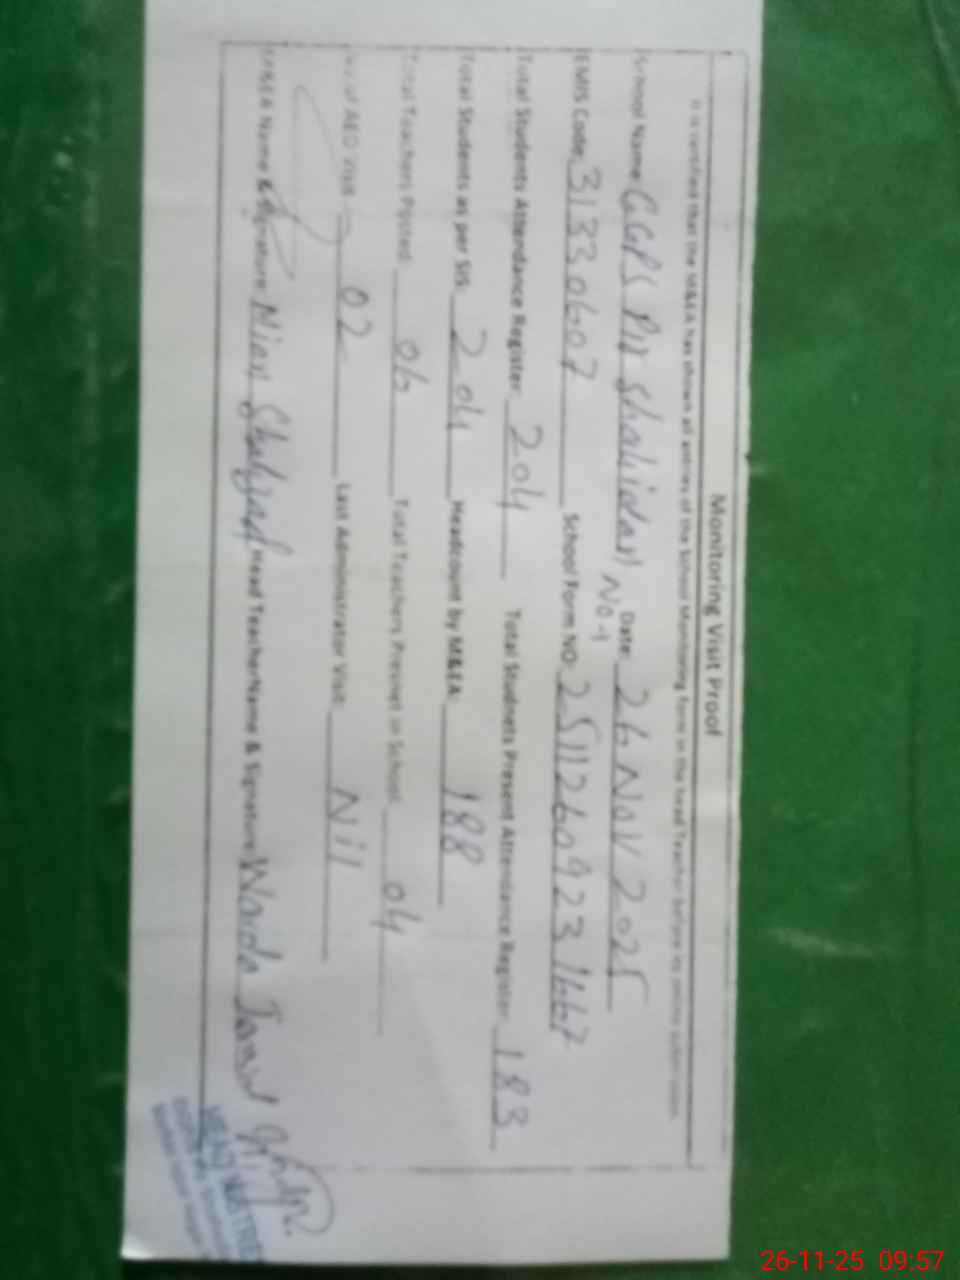 Monitoring Visit Proof
It is certified that the M&EA has shown all entries of the School Monitoring Form to the Head Teacher before its online submission.
School Name: GGPS Pir Shahidan No-1 Date: 26 Nov 2025
EMIS Code: 31330607 School Form NO: 25112609231667
Total Students Attendance Register: 204 Total Studnets Present Attendance Register: 183
Total Students as per SIS: 204 Headcount by M&EA: 188
Total Teachers Posted: 06 Total Teachers Presnet in School: 04
No of AEO Visit: 02 Last Administrator Visit: Nil
M&EA Name & Signature: Mian Shahzad Head Teacher Name & Signature: Warda
HEAD MISTRE
26-11-25 09:57